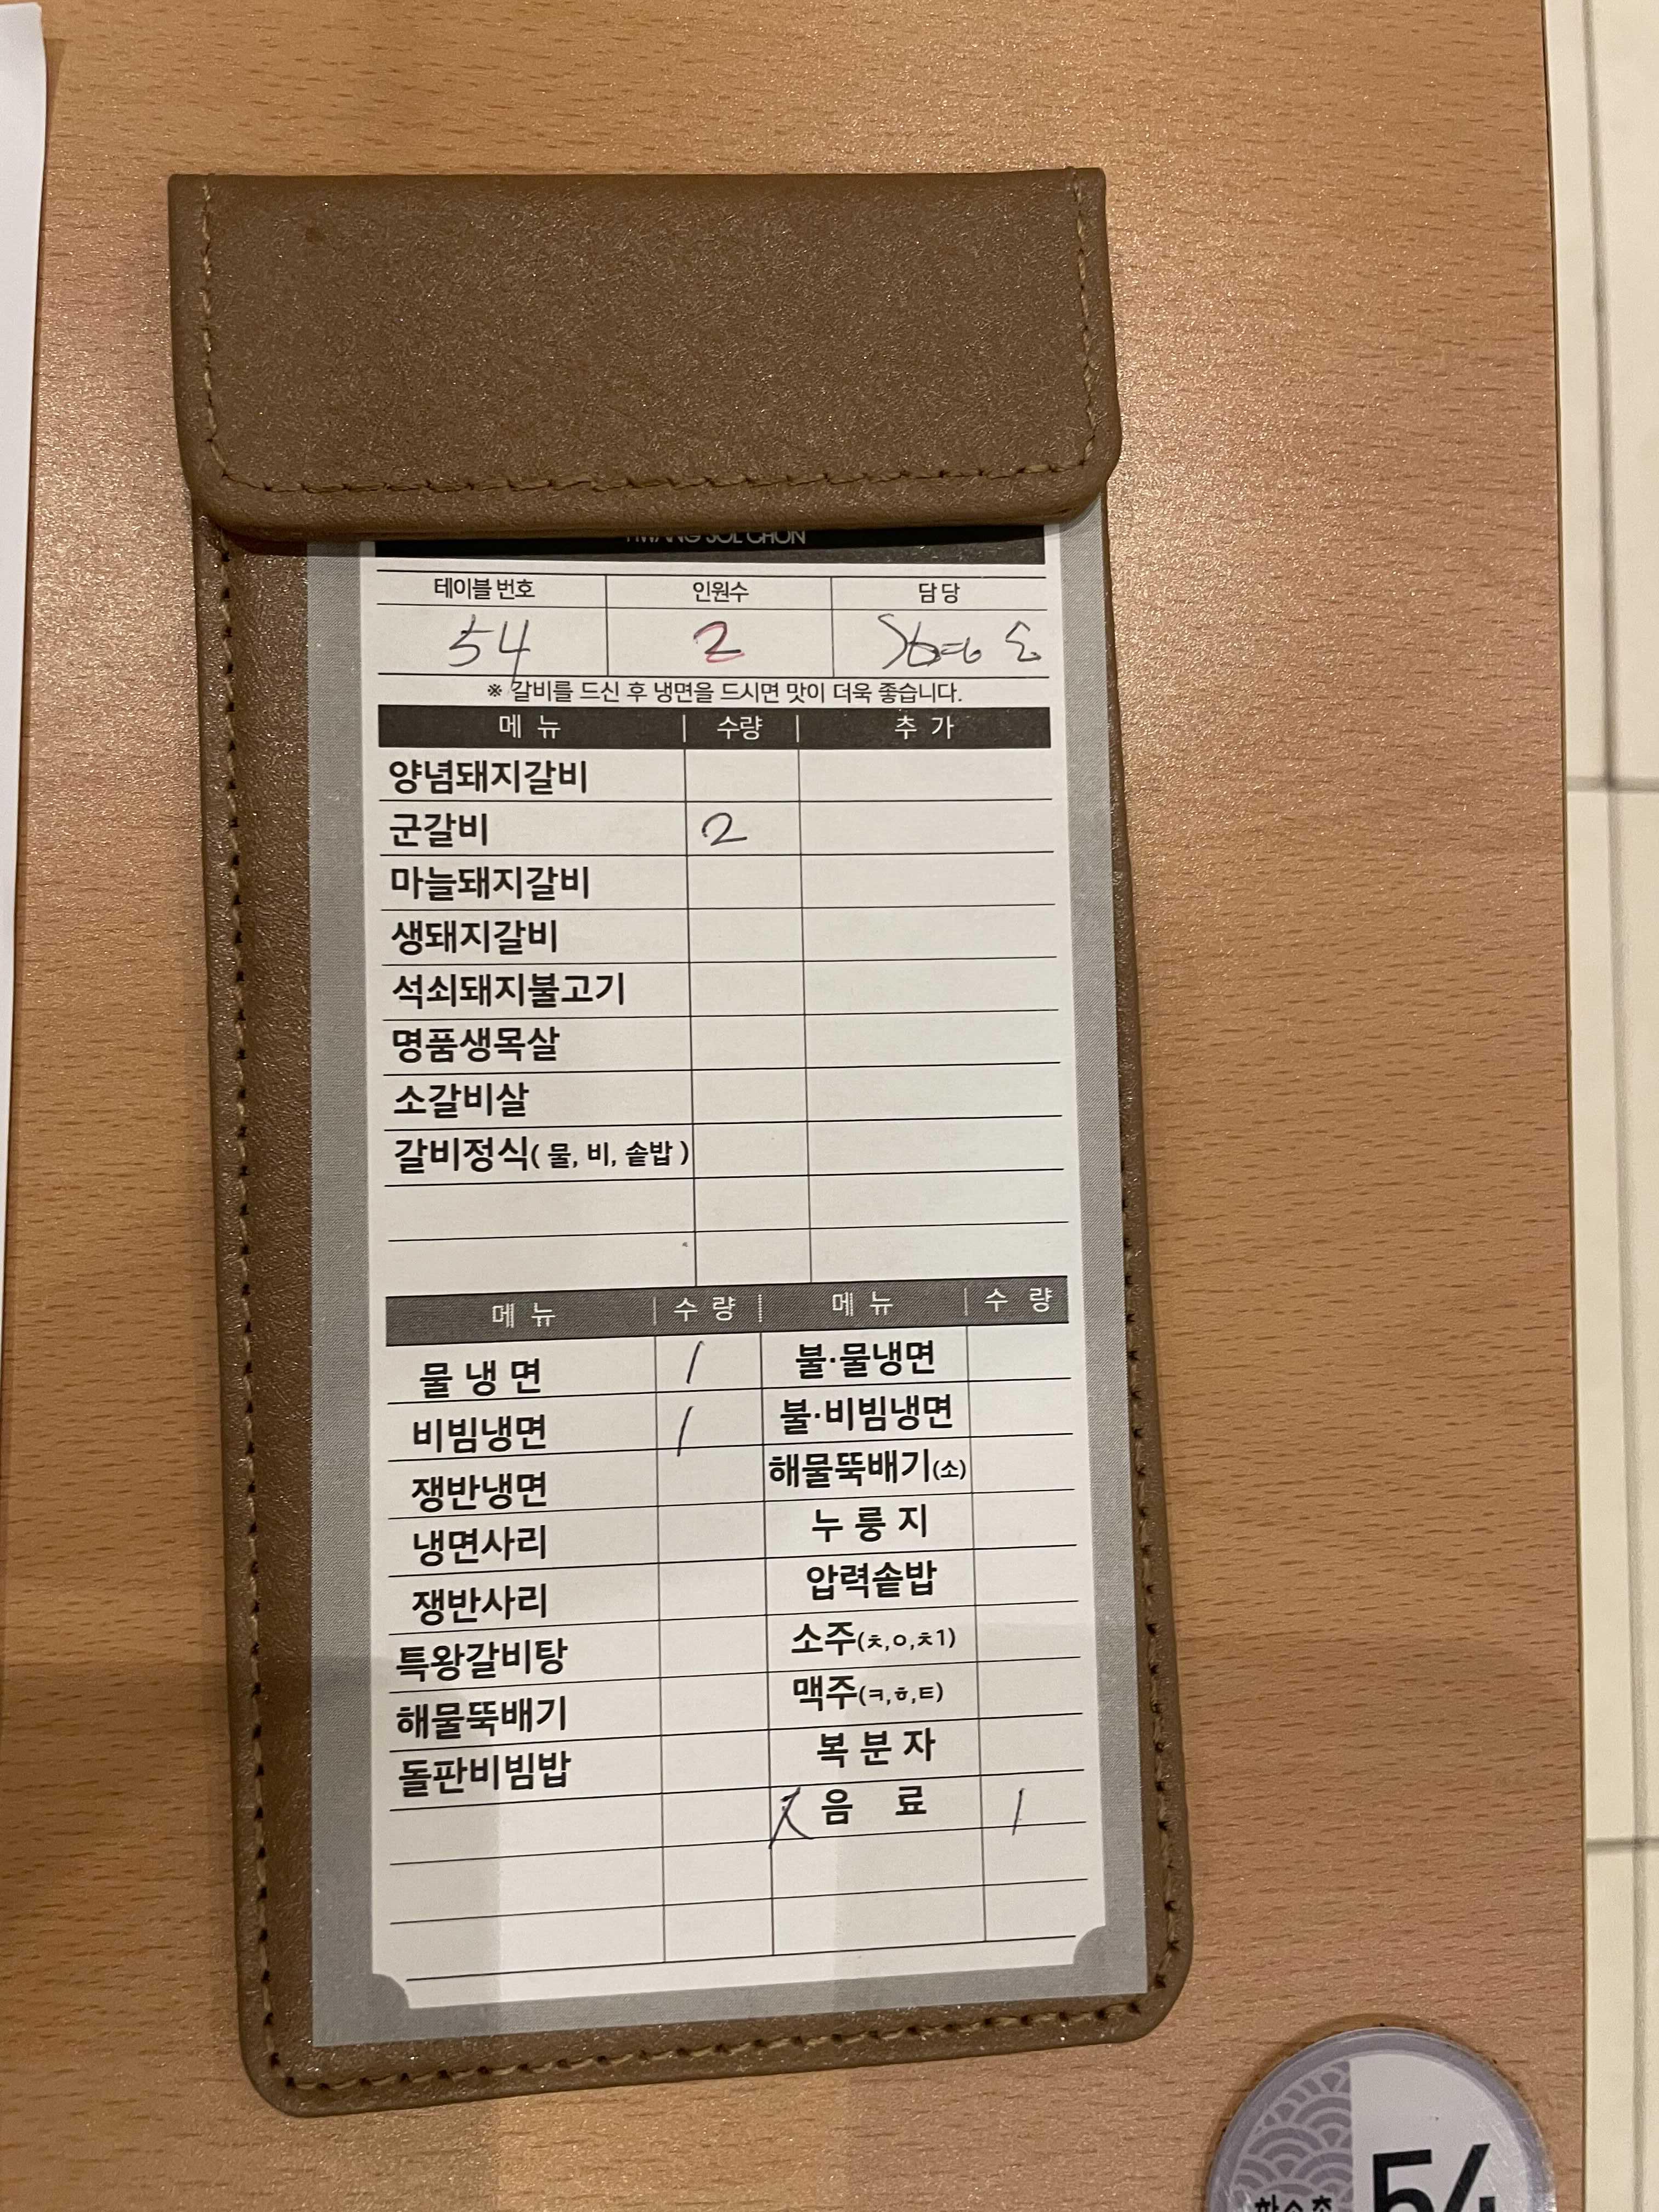 HWANG SOL CHON
테이블 번호 인원수 담 당
54 2
※ 갈비를 드신 후 냉면을 드시면 맛이 더욱 좋습니다.
메 뉴 수량 추 가
양념돼지갈비
군갈비 2
마늘돼지갈비
생돼지갈비
석쇠돼지불고기
명품생목살
소갈비살
갈비정식( 물, 비, 솥밥 )
메 뉴 수 량 메 뉴 수 량
물 냉 면 1 불·물냉면
비빔냉면 1 불·비빔냉면
쟁반냉면 해물뚝배기(소)
냉면사리 누 룽 지
쟁반사리 압력솥밥
특왕갈비탕 소주(ㅊ,ㅇ,ㅊ1)
해물뚝배기 맥주(ㅋ,ㅎ,ㅌ)
돌판비빔밥 복 분 자
음 료 1
54